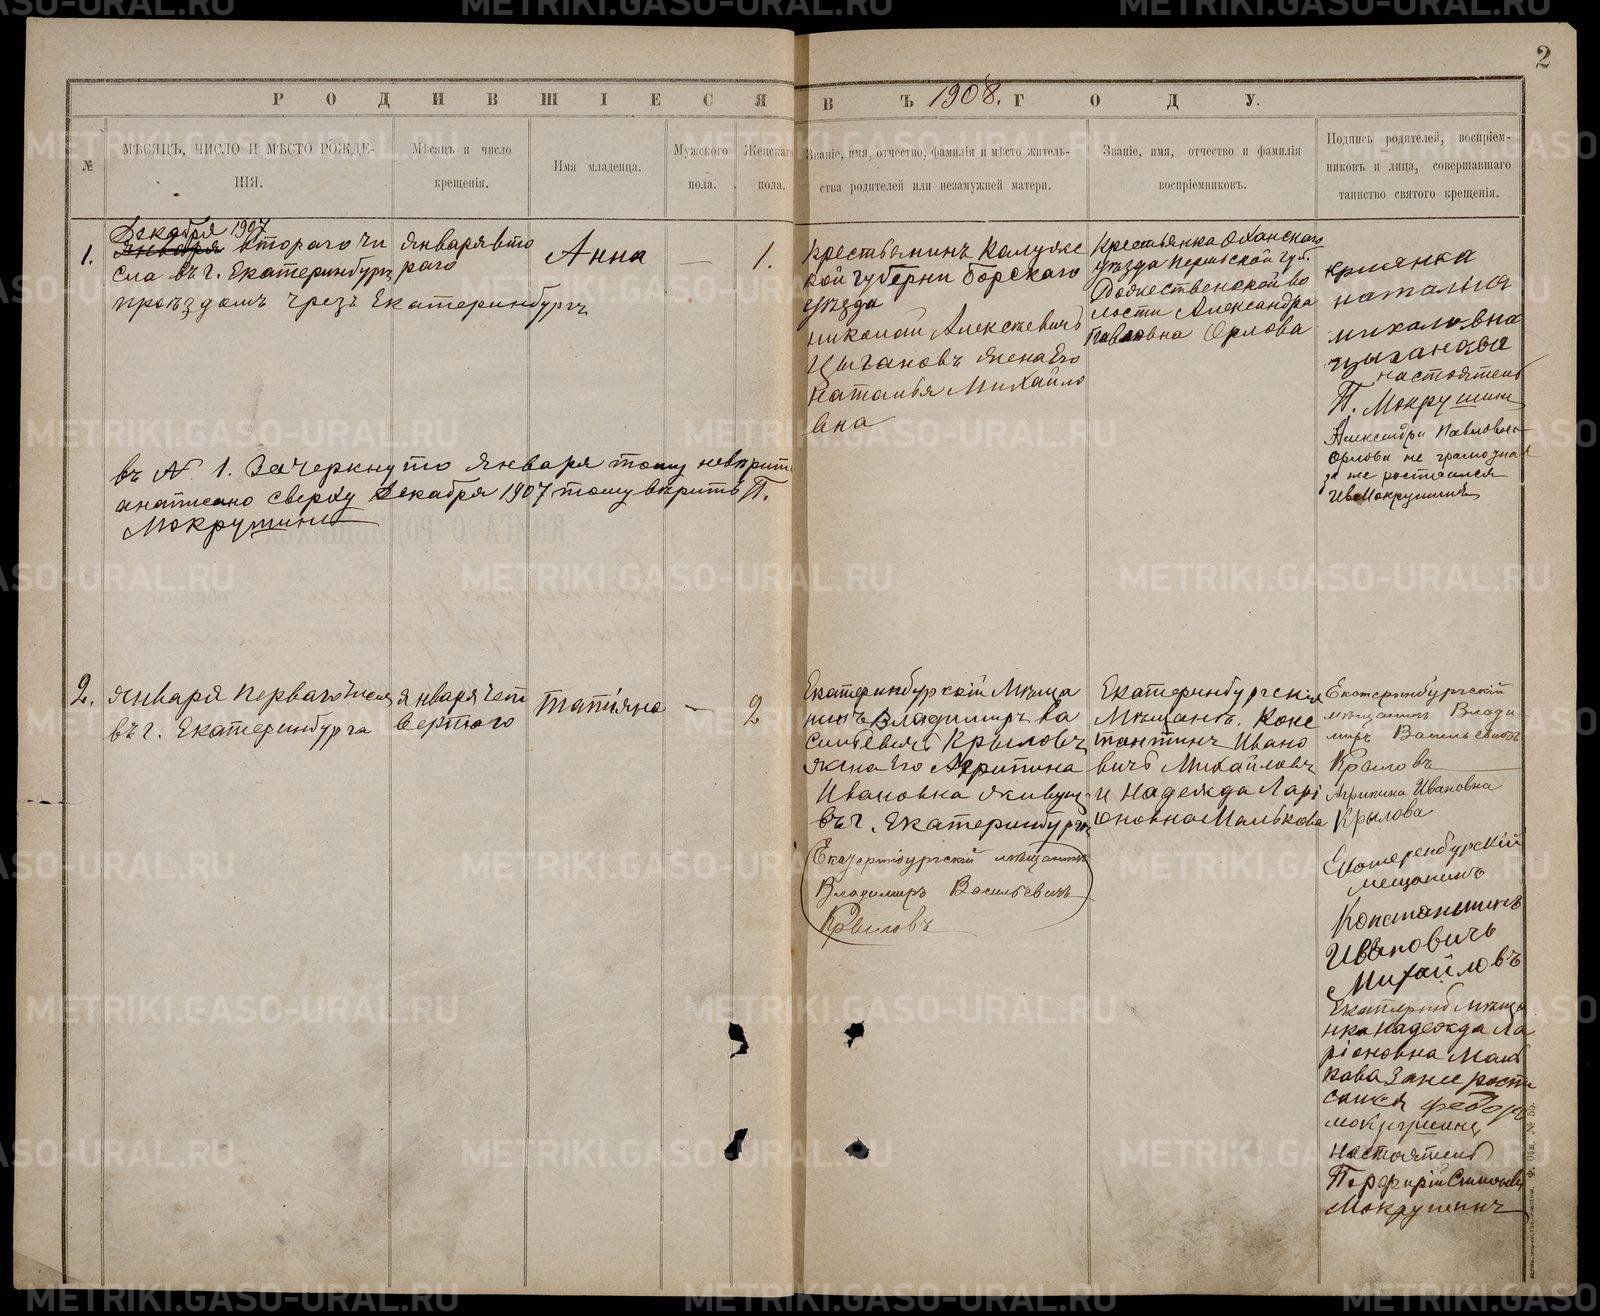 2
РОДИВШІЕСЯ ВЪ 1908. ГОДУ.
№
МѢСЯЦЪ, ЧИСЛО И МѢСТО РОЖДЕ-
НІЯ.
Мѣсяцъ и число
крещенія.
Имя младенца.
Мужского
пола.
Женскаго
пола.
Званіе, имя, отчество, фамилія и мѣсто житель-
ства родителей или незамужней матери.
Званіе, имя, отчество и фамилія
воспріемниковъ.
Подпись родителей, воспріем-
никовъ и лица, совершавшаго
таинство святого крещенія.
1.
Декабря 1907
Января второго чи
сла въ г. Екатеринбургѣ
проѣздомъ чрезъ Екатеринбургъ
Января вто
раго
Анна
—
1.
Крестьянинъ Калужс
кой губерни Борскаго
уѣзда
николай Алексѣевичъ
Цыгановъ жена Его
Наталья Михайло
вна
Крестьянка Оханскаго
уѣзда Пермской губ.
Рождественской во
лости Александра
Павловна Орлова
наталия
михаловна
цыганова
настоятель
П. Мокрушинъ
Александра Павловна
Орлова не грамозная
за ие ростаился
Ив Мокрушинъ
въ № 1. Зачеркнуто Января тому невѣрит
анаписано сверху Декабря 1907 тому вѣрить П.
Мокрушинъ
2.
Января Перваго числа
въ г. Екатеринбурга
Января чет
вертого
Татіяна
—
2
Екатеринбурскій Мѣща
нинъ Владимиръ Ва
сильевичъ Крыловъ
жена Его Агрипина
Ивановна живущ
въ г. Екатеринбургѣ
Екатеринбургскій мѣщанинъ
Владимиръ Васильевичъ
Крыловъ
Екатеринбургския
Мѣщанѣ. Конс
тантинъ Ивано
вичъ Михайловъ
и Надежда Ларі
оновна Малькова
Екатеринбургскій
мѣщанинъ Влади
миръ Васильевичъ
Крыловъ
Агрипина Ивановна
Крылова
Екатеренбурскій
мещанинъ
Константинъ
Ивановичъ
Михайловъ
Екатеринб Мѣща
нка надежда Ла
ріоновна Маль
кова Зание рости
сался Федоръ
мокрушинъ
настоятель
Порфирій
Мокрушинъ
METRIKI.GASO-URAL.RU